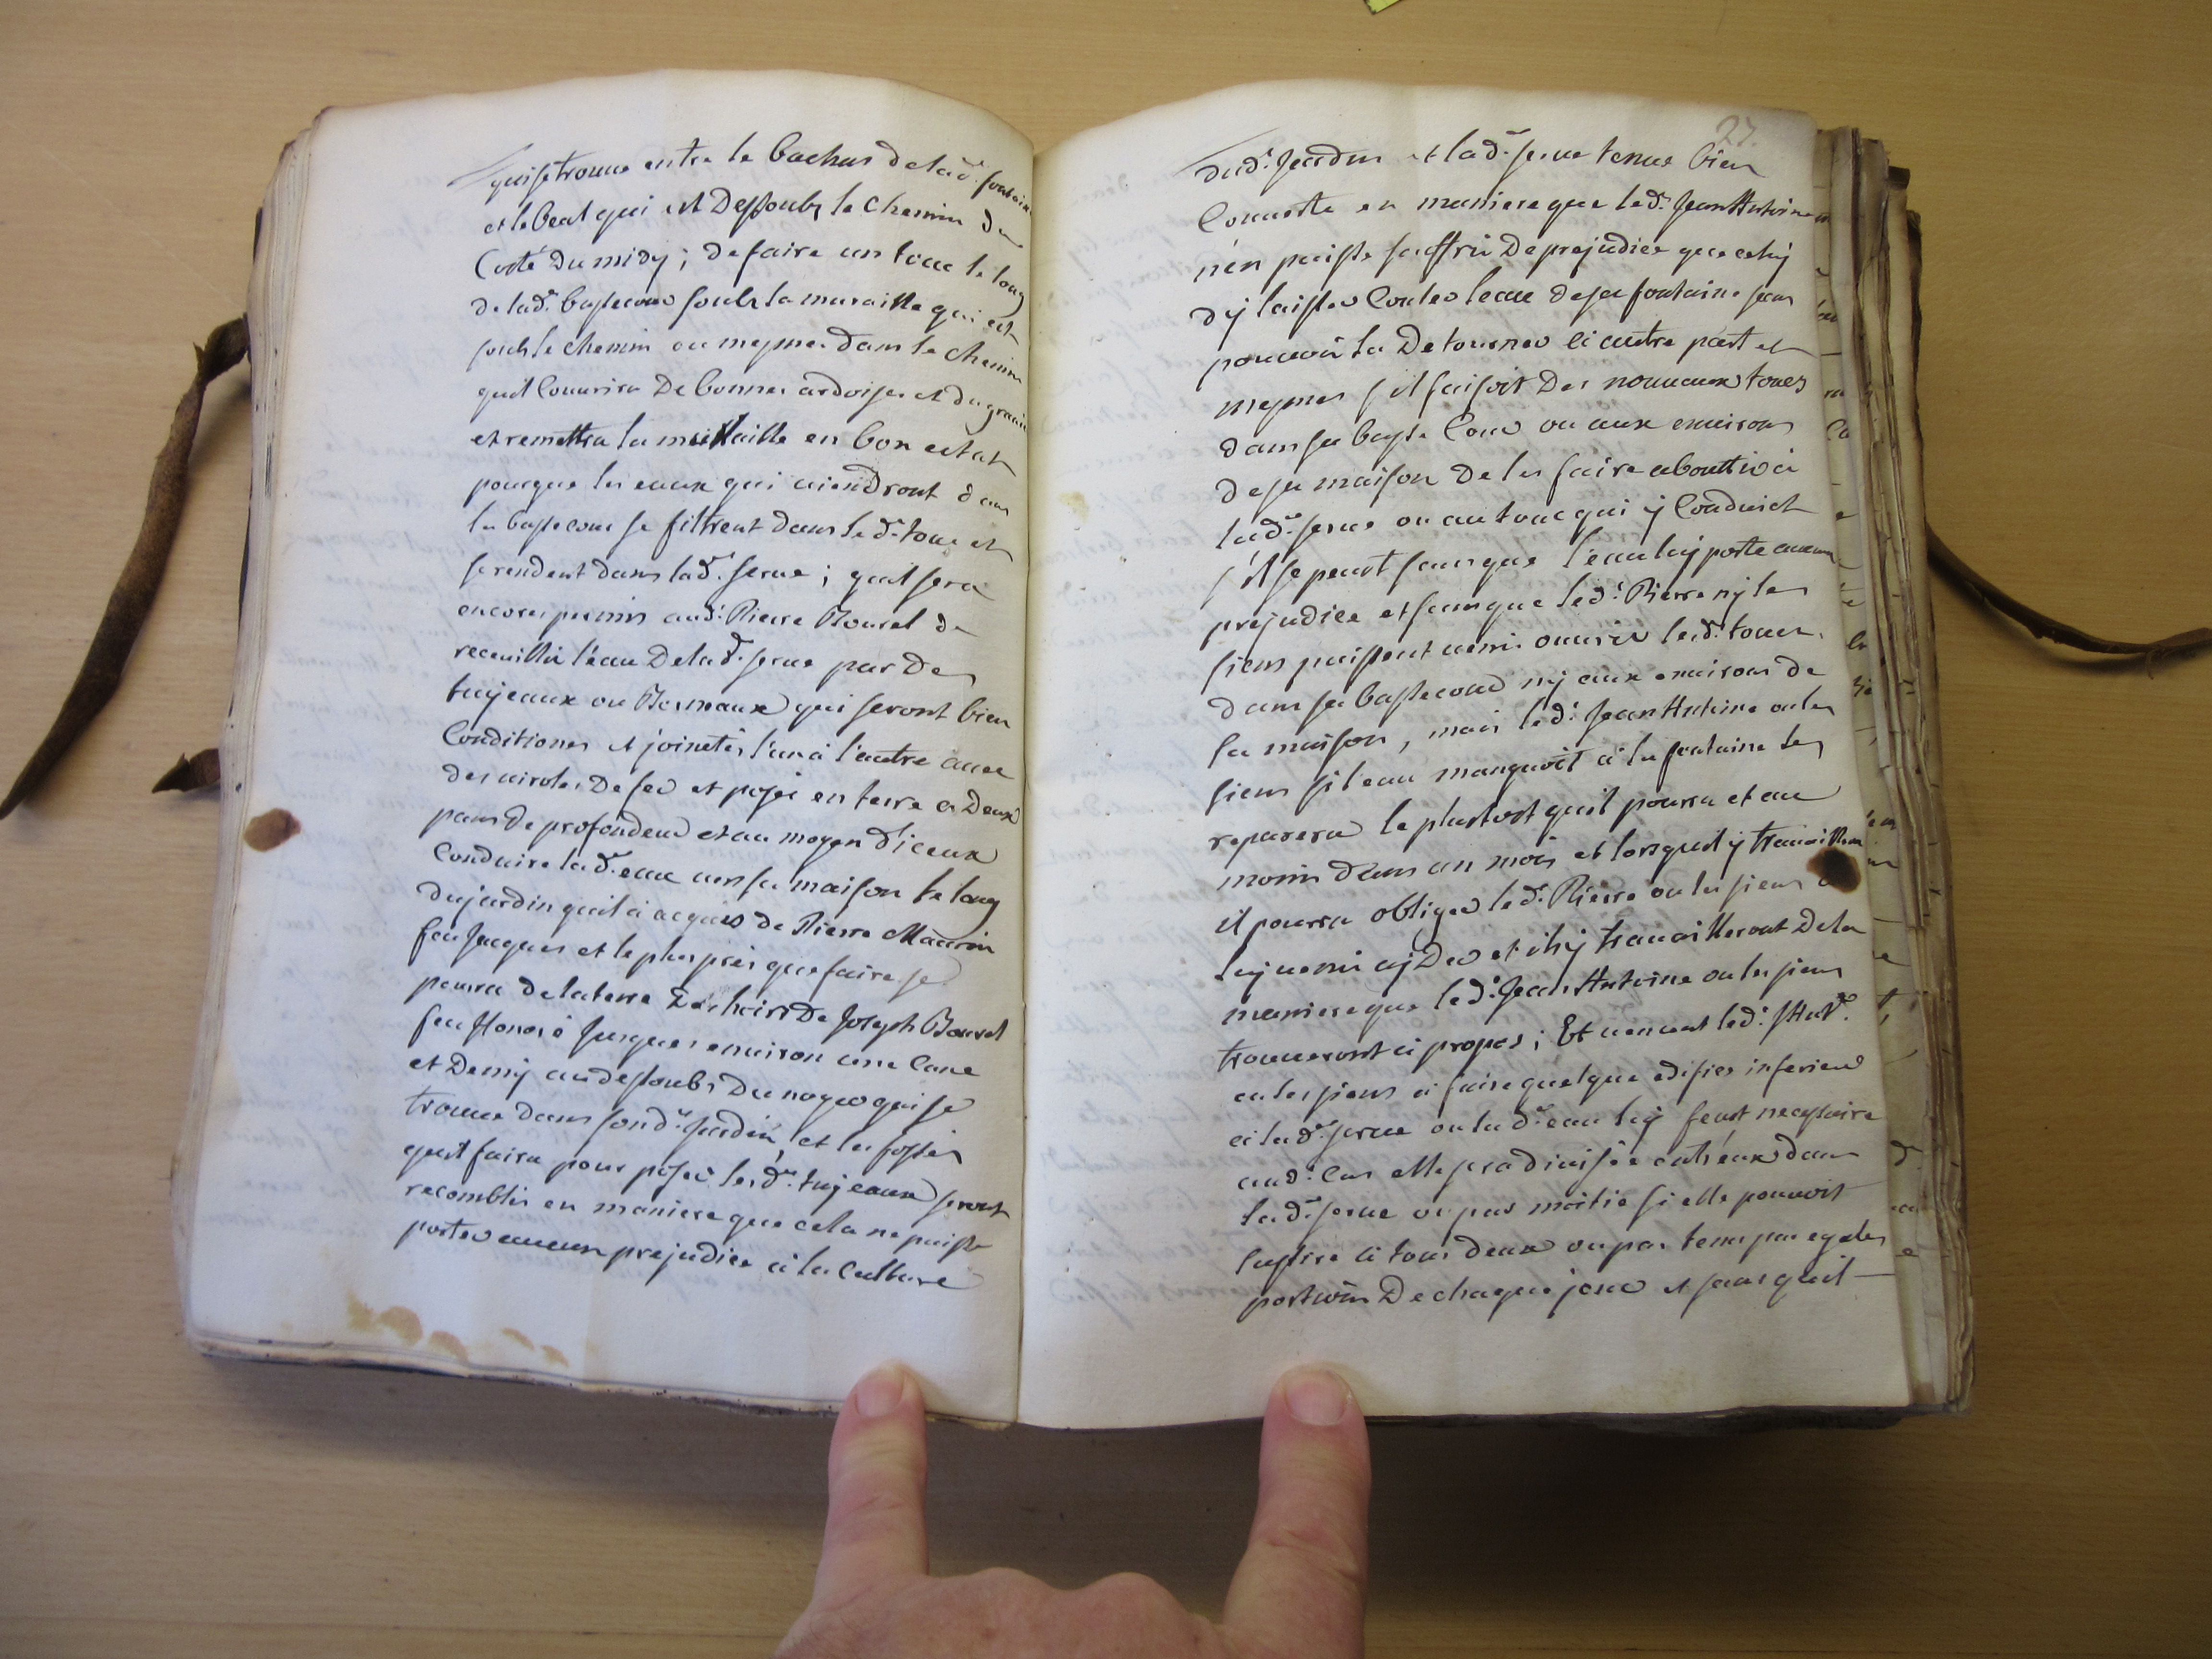 qui se trouue entre le bachas de lad.e fontaine
et le beal qui est dessoubs le chemin du
Costé du midy ; de faire un touc le long
de lad.e bassecour soubs la muraille qui est
soubs le chemin ou mesmes dans le chemin
quil Couurira de bonnes ardoises et du grauie
et remettra la muraille en bon estat
pourque les eaux qui uiendront dans
la bassecour se filtrent dans led.t touc et
se rendent dans lad.e serue ; quil sera
encores permis aud.t Pierre Bourel de
receuillir l'eau de lad.e serue par des
tuyeaux ou Borneaux qui seront bien
Conditionés et joinctés l'un à l'autre auec
des uiroles de fer et posés en terre a deux
pans de profondeur et au moyen d'iceux
Conduire lad.e eau uers sa maison le long
du jardin quil a acquis de Pierre Maurin
feu Jacques et le plus près que faire se
pourra de la terre des hoirs de Joseph Bourel
feu Honoré jusques enuiron une Cane
et demy au dessoubs du noyer qui se
trouue dans sond.t jardin, et les fossés
quil faira pour poser lesd.ts tuyeaux seront
recomblés en maniere que cela ne puisse
porter aucun prejudice à la Culture
27.
dud.t Jardin et lad.e serue tenue bien
Couuerte en maniere que led.t Jean Antoine
n'en puisse souffrir de prejudice que celuy
d'y laisser Couler leau de sa fontaine sans
pouuoir la detourner à autre part et
mesmes s'il faisoit des nouueaux toucs
dans sa basse Cour ou aux enuirons
de sa maison de les faire abouttir à
lad.e serue ou au touc qui y Conduict
s'il se peut sans que l'eau luy porte aucun
prejudice et sans que led.t Pierre ny les
siens puissent uenir ouurir lesd.ts toucs
dans sa bassecour ny aux enuirons de
sa maison, mais led.t Jean Antoine ou les
siens si leau manquoit à la fontaine les
reparera le plustost quil pourra et au
moins dans un mois et lorsquil y trauaillera
il pourra obliger led.t Pierre ou les siens a
luy uenir ayder et ils y trauailleront de la
maniere que led.t Jean Antoine ou les siens
trouueront à propos ; Et uenant led.t J Ant.e
ou les siens à faire quelque edifice inferieur
à lad.e serue ou lad.e eau luy feut necessaire
aud.t Cas elle sera diuisée entr'eux dans
lad.e serue ou par moitié si elle pouuoit
suffire à tous deux ou par tems par egales
portions de chaque jour et sans quil